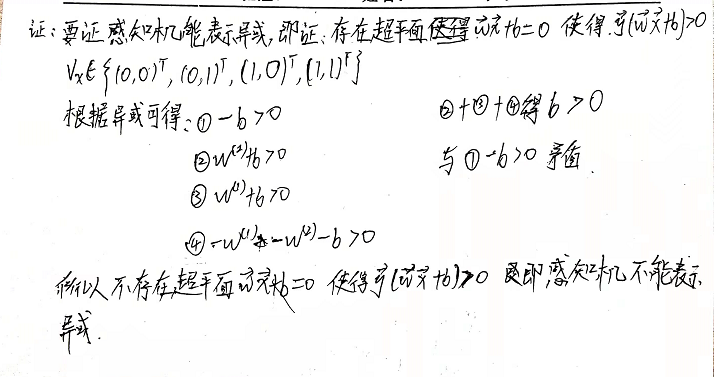 证：要证感知机能表示异或，即证：存在超平面使得 w⃗x⃗+b=0 使得 y⃗(w⃗x⃗+b)>0
∀x∈{(0,0)ᵀ, (0,1)ᵀ, (1,0)ᵀ, (1,1)ᵀ}
根据异或可得：① -b>0
② w⁽²⁾+b>0
③ w⁽¹⁾+b>0
④ -w⁽¹⁾-w⁽²⁾-b>0
②+③+④得 b>0
与① -b>0 矛盾.
所以不存在超平面 w⃗x⃗+b=0 使得 y⃗(w⃗x⃗+b)>0 即感知机不能表示
异或.